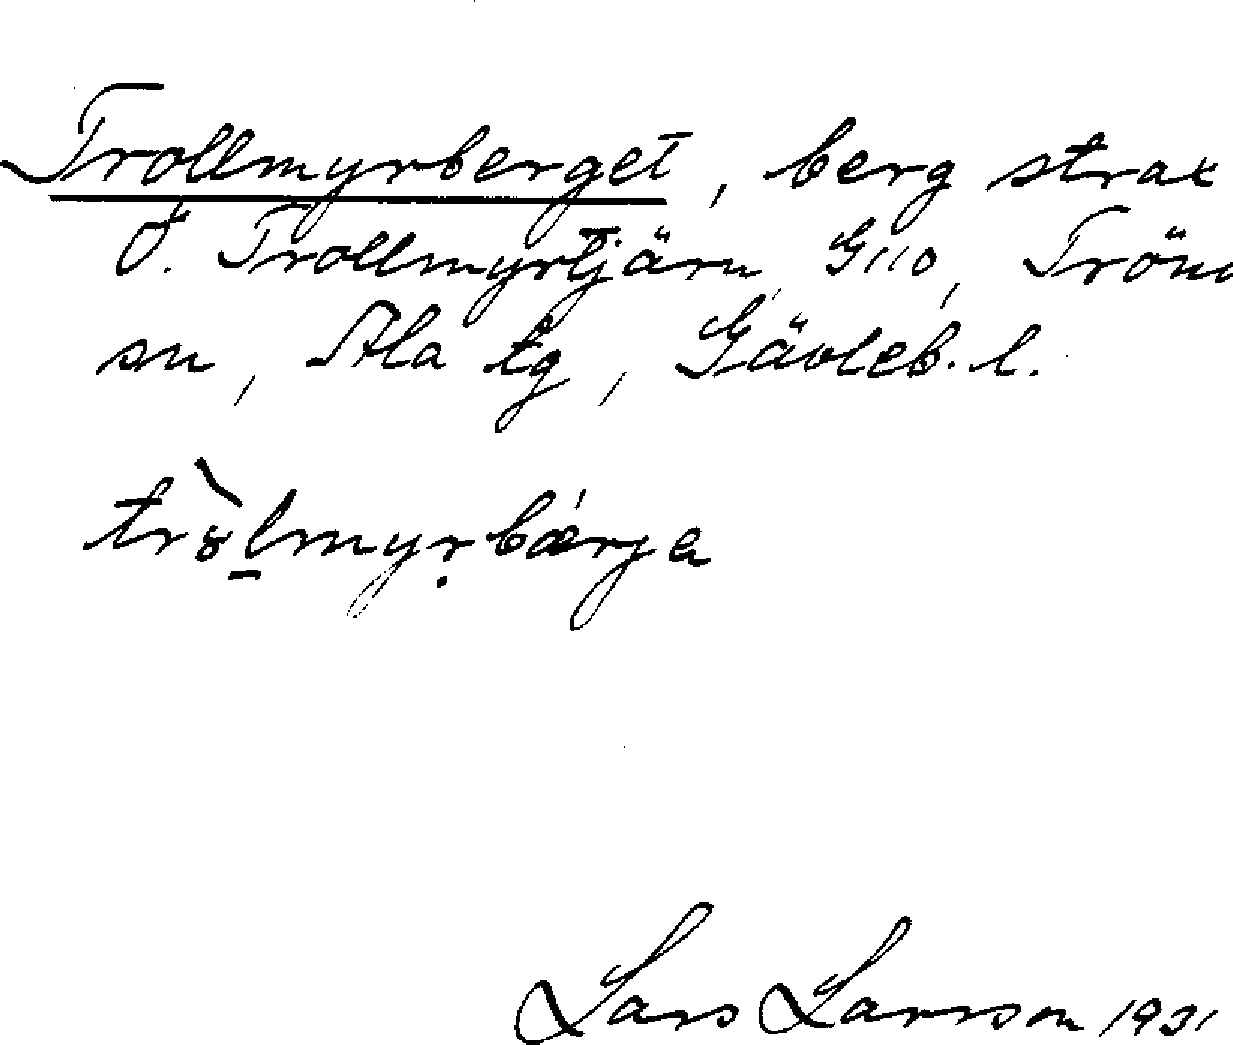 Trollmyrberget, berg strax
Ö. Trollmyrtjärn, G110, Trönö
sn, Ala tg, Gävleb. l.
tròlmyrbǽrja
Lars Larsson 1931